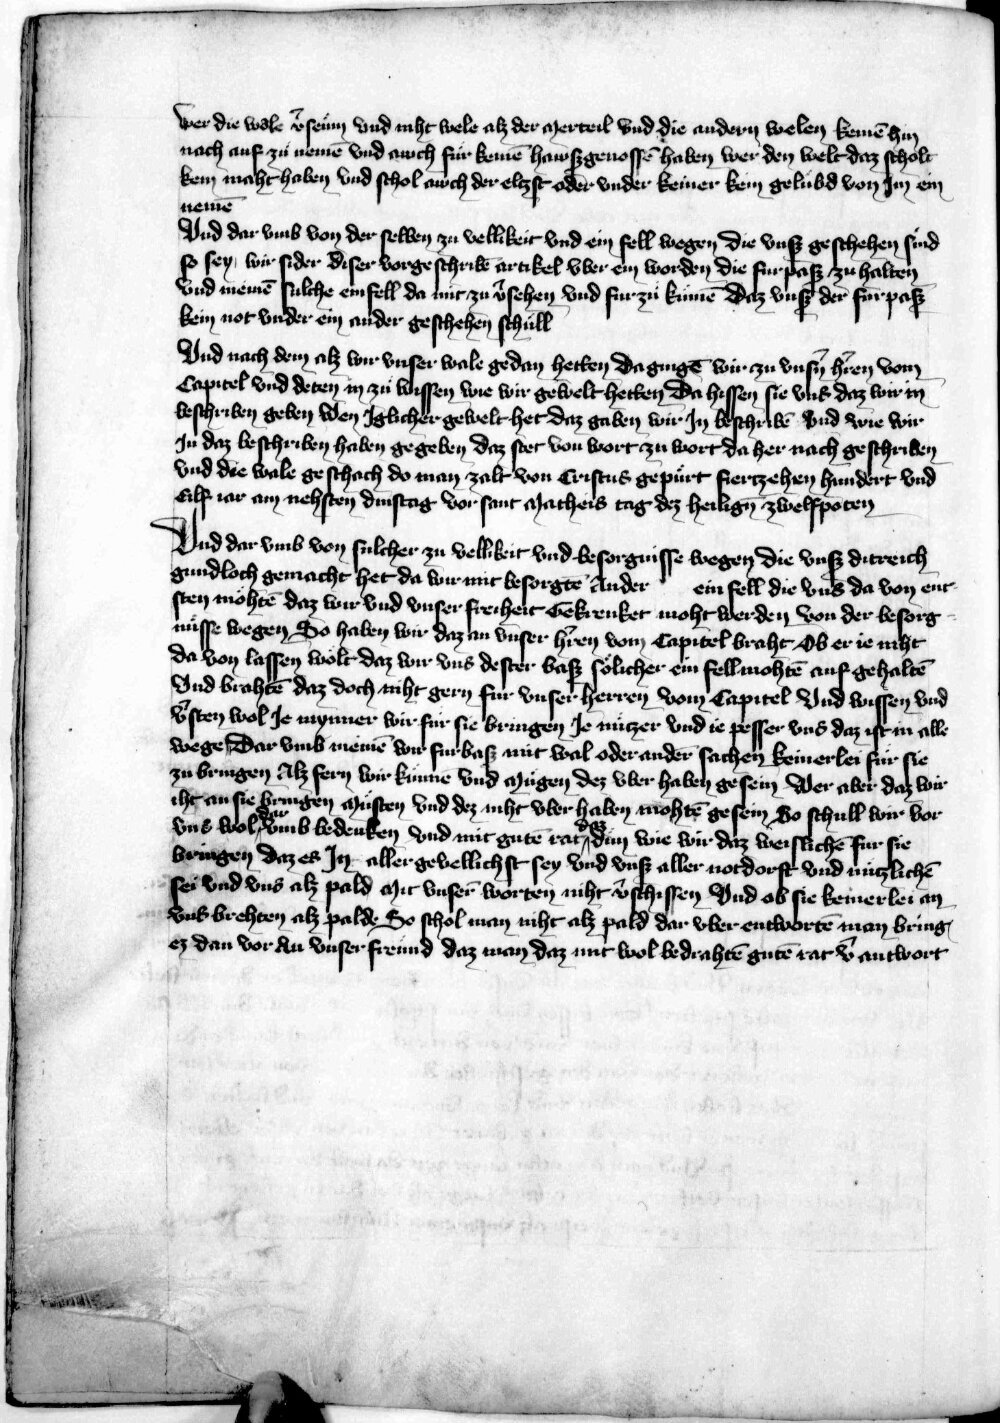 wer die wale v̄seum vnd niht wele alz der merteil vnd die andern welen keinē hin
nach auf zu nemē vnd awch fur keinē hawszgenossē haben wer den welt daz scholt
kein maht haben vnd schol awch der eltzst oder vnder keiner kein gelubd von Im ein
nemē
Vnd dar vmb von der selben zu vellikeit vnd ein fell wegen die vnsz geschehen sind
so sey wir sider diser vorgeschribē artikel vber ein worden die furpasz zu halten
vnd meinē sulche einfell da mit zu v̄sehen vnd fur zu kumē Daz vnsz der furpasz
kein not vnder ein ander geschehen schull
Vnd nach dem alz wir vnser wale gedan hetten Da gingē wir zu vnsn̄ hr̄en vom
Capitel vnd deten in zu wissen wie wir gewelt hetten Da hissen sie vns daz wir in
beschriben geben wen Iglicher gewelt het daz gaben wir In beschribē Vnd wie wir
In daz beschriben haben gegeben daz stet von wort zu wort da her nach geschriben
vnd die wale geschach do man zalt von Cristus gepurt fiertzehen hundert vnd
Eilf iar am nehsten dinstag vor sant Matheis tag dez heilign̄ zwelfpoten
Vnd dar vmb von sulcher zu vellikeit vnd besorgnisse wegen die vnsz ditreich
gundloch gemacht het da wir mit besorgtē Ander ein fell die vns da von ent
sten mohtē daz wir vnd vnser freiheit Gekrenket moht werden von der besorg
nusse wegen So haben wir daz an vnser hr̄en vom Capitel braht Ob er ie niht
da von lassen wolt daz wir vns dester basz solicher ein fell mohtē auf gehaltē
Vnd brahtē daz doch niht gern fur vnser herren vom Capitel Vnd wissen vnd
v̄sten wol Ie mynner wir fur sie bringen Ie nutzer vnd ie pesser vns daz ist in alle
wege Dar vmb meinē wir furbasz mit wal oder ander sachen keinerlei fur sie
zu bringen Alz fern wir kunne vnd mugen dez vber haben gesein Wer aber daz wir
iht an sie bringen musten vnd dez niht vber haben mohtē gesein So schull wir vor
vns wol dar vmb bedenken vnd mit gutē rat daz dun wie wir daz weislichē fur sie
bringen daz es In aller gevellichst sey vnd vnsz aller notdorft vnd nutzlichē
sei vnd vns alz pald mit vnsern̄ worten niht v̄schissen Vnd ob sie keinerlei an
vns brehten alz palde So schol man niht alz pald dar vber entwortē man bring
ez dan vor an vnser freund daz man daz mit wol bedrahtē gutē rat v̄antwort